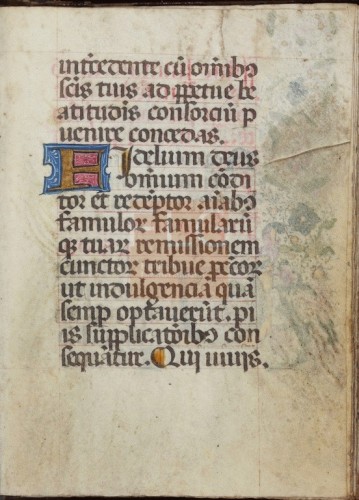 intercedente cū om̄ibꝰ
scīs tuis ad ꝑpetue be
atitudīs consorciū ꝑ
venire concedas.
Fidelium deus
om̄ium cōdi
tor et redēptor aīabꝰ
famulor famularū
qꝫ tuar remissionem
cunctor tribue pēcor
ut indulgenciā quā
semp optaverūt. pi
is supplicatōibꝰ con
sequātur. Qui vivis.